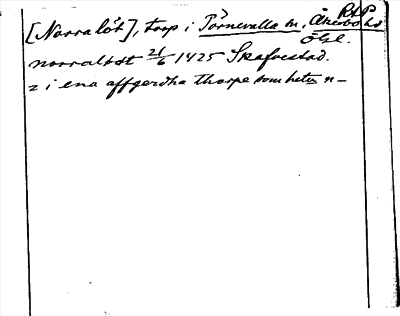 RAP
[Norralöt], torp i Törnevalla sn, Åkerbo hd
Ögl.
norraltöt 21/6 1425 Skafvestad.
z i ena affgerdha thorpe som heter n–